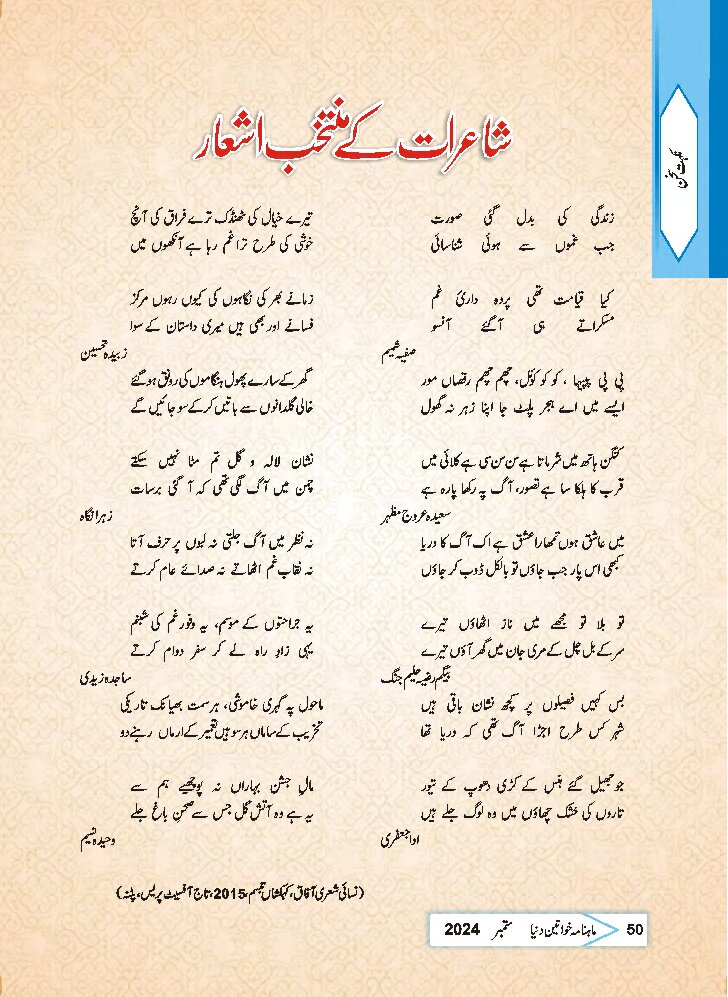 نکہت سخن
شاعرات کے منتخب اشعار
زندگی کی بدل گئی صورت
جب غموں سے ہوئی شناسائی
کیا قیامت تھی پردہ داریٔ غم
مسکراتے ہی آگئے آنسو
صفیہ شمیم
پی پی پپیہا ، کو کو کوئل، چھم چھم رقصاں مور
ایسے میں اے ہجر پلٹ جا اپنا زہر نہ گھول
کنگن ہاتھ میں شرماتا ہے سن سن سی ہے کلائی میں
قرب کا ہلکا سا ہے تصور، آگ پہ رکھا پارہ ہے
سعیدہ عروج مظہر
میں عاشق ہوں تمھارا عشق ہے اک آگ کا دریا
کبھی اس پار جب جاؤں تو بالکل ڈوب کر جاؤں
تو بلا تو مجھے میں ناز اٹھاؤں تیرے
سر کے بل چل کے مری جان میں گھر آؤں تیرے
بیگم رضیہ حلیم جنگ
بس کہیں فصیلوں پر کچھ نشان باقی ہیں
شہر کس طرح اجڑا آگ تھی کہ دریا تھا
جو جھیل گئے ہنس کے کڑی دھوپ کے تیور
تاروں کی خنک چھاؤں میں وہ لوگ جلے ہیں
ادا جعفری
تیرے خیال کی ٹھنڈک ترے فراق کی آنچ
خوشی کی طرح ترا غم رہا ہے آنکھوں میں
زمانے بھر کی نگاہوں کی کیوں رہوں مرکز
فسانے اور بھی ہیں میری داستان کے سوا
زبیدہ تحسین
گھر کے سارے پھول ہنگاموں کی رونق ہوگئے
خالی گلدانوں سے باتیں کرکے سو جائیں گے
نشان لالہ و گل تم مٹا نہیں سکتے
چمن میں آگ لگی تھی کہ آ گئی برسات
زہرا نگاہ
نہ نظر میں آگ جلتی نہ لبوں پر حرف آتا
نہ نقاب غم اٹھاتے نہ صدائے عام کرتے
یہ جراحتوں کے موسم، یہ وفور غم کی شبنم
یہی زادِ راہ لے کر سفر دوام کرتے
ساجدہ زیدی
ماحول پہ گہری خاموشی، ہر سمت بھیانک تاریکی
تخریب کے ساماں ہر سو ہیں تعمیر کے ارماں رہنے دو
مال جشن بہاراں نہ پوچھیے ہم سے
یہ ہے وہ آتش گل جس سے صحن باغ جلے
وحیدہ نسیم
(نسائی شعری آفاق، کہکشاں تبسم، 2015، تاج آفسیٹ پریس، پٹنہ)
50 ماہنامہ خواتین دنیا ستمبر 2024